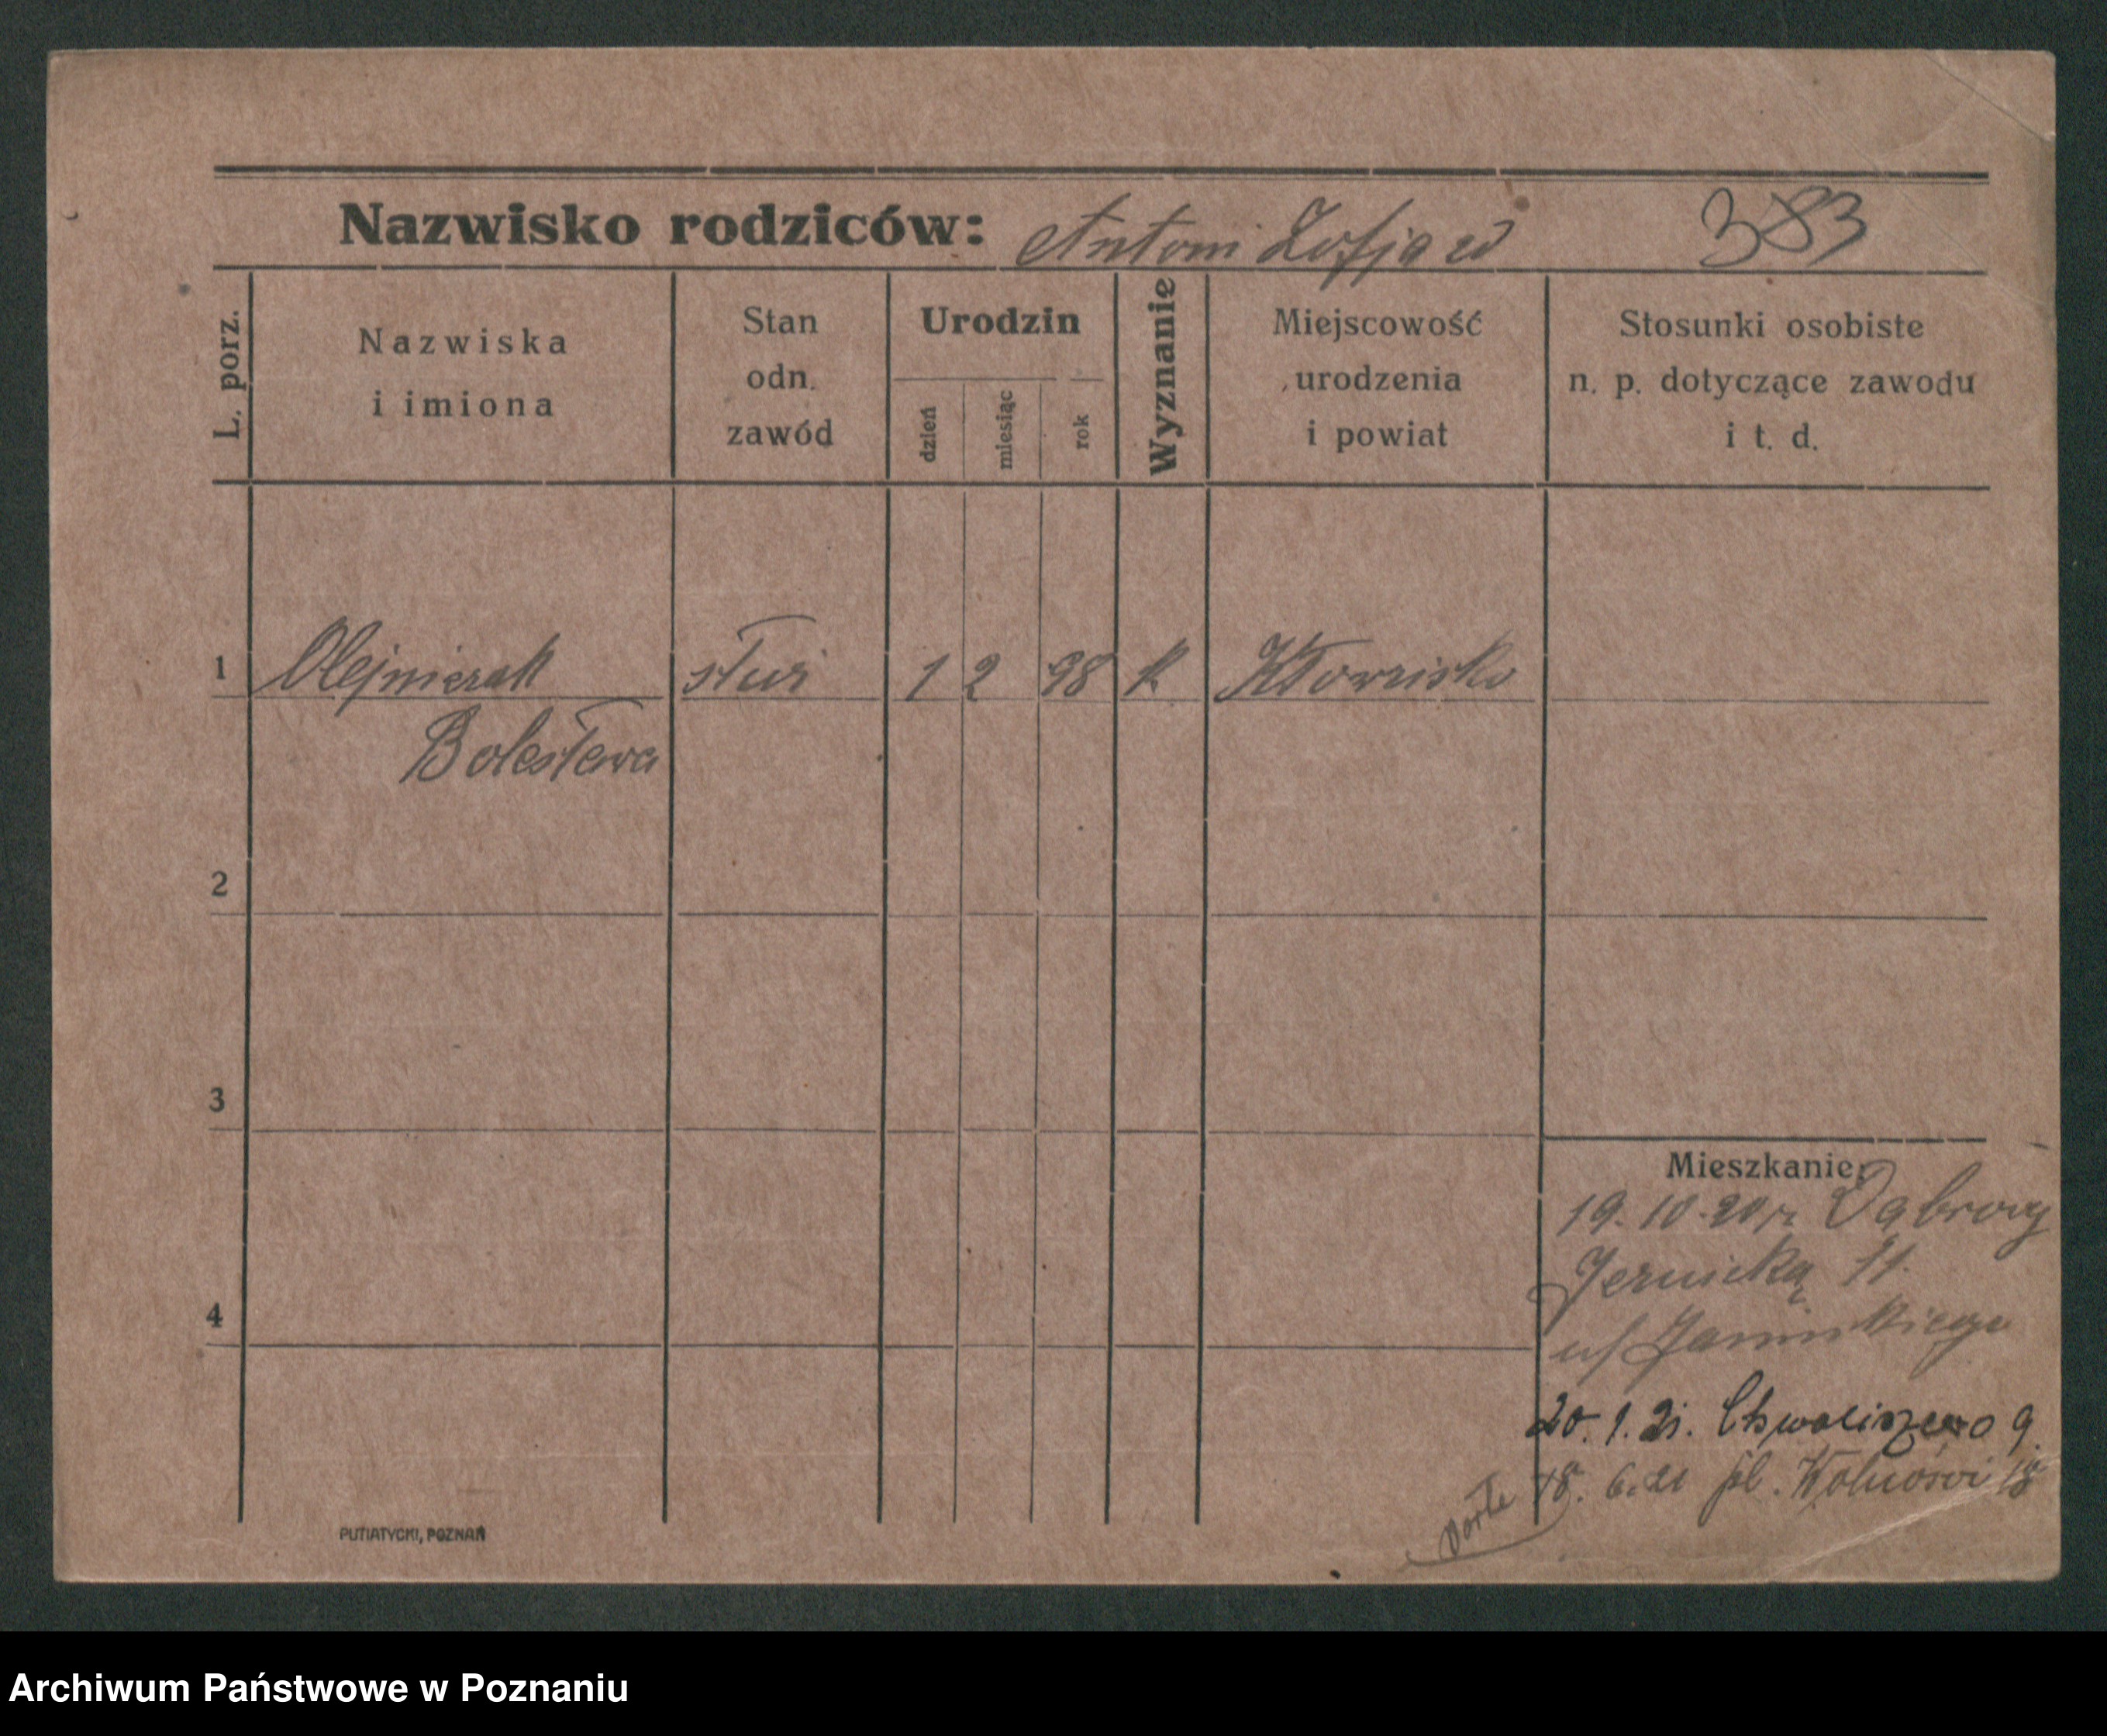 Nazwisko rodziców: Antoni Zofja w 383
L. porz.
Nazwiska
i imiona
Stan
odn.
zawód
Urodzin
dzień
miesiąc
rok
Wyznanie
Miejscowość
urodzenia
i powiat
Stosunki osobiste
n. p. dotyczące zawodu
i t. d.
1 Olejniczak 1 2 98 k
Bolesława
2
3
4
Mieszkanie:
19. 10. 20
11.
20. 1. 21. Chwaliszewo 9.
18. 6. 21 pl. Wolności 18
PUTIATYCKI, POZNAŃ
Archiwum Państwowe w Poznaniu